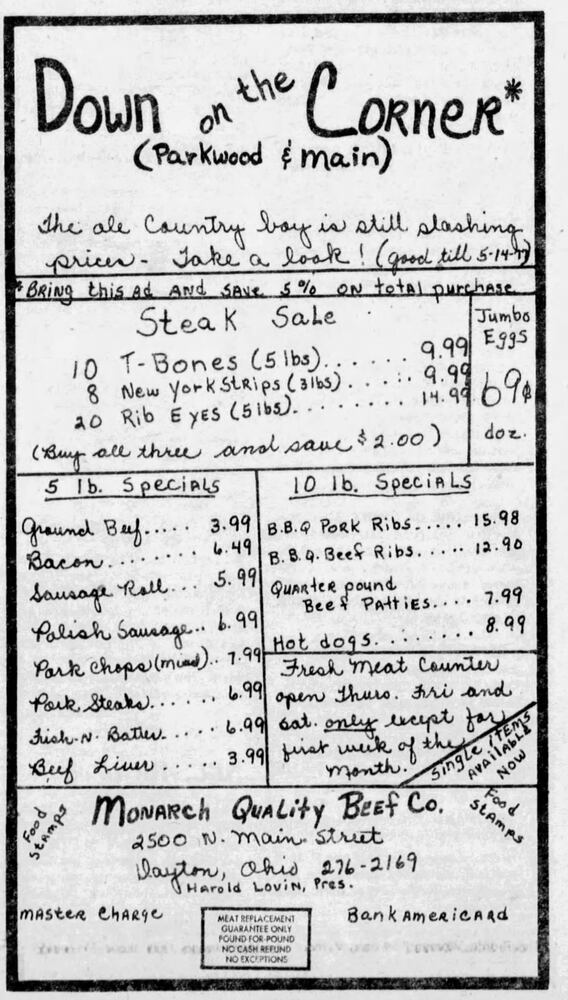 Down on the Corner*
(Parkwood & main)
The ole Country boy is still slashing
prices - Take a look! (good till 5-14-77)
*Bring this ad and save 5% on total purchase
Steak Sale
10 T-Bones (5 lbs)...... 9.99
8 New York Strips (3 lbs)..... 9.99
20 Rib Eyes (5 lbs)....... 14.99
(Buy all three and save $2.00)
Jumbo
Eggs
69¢
doz.
5 lb. Specials
Ground Beef..... 3.99
Bacon........ 6.49
Sausage Roll... 5.99
Polish Sausage.. 6.99
Pork Chops (mixed).. 7.99
Pork Steaks...... 6.99
Fish-N-Batter..... 6.99
Beef Liver..... 3.99
10 lb. Specials
B.B.Q Pork Ribs..... 15.98
B.B.Q. Beef Ribs..... 12.90
Quarter pound
Beef Patties.... 7.99
Hot dogs......... 8.99
Fresh Meat Counter
open Thurs. Fri and
Sat. only except for
first week of the
month.
Single items
Available
Now
Food
Stamps
Monarch Quality Beef Co.
Food
Stamps
2500 N. Main Street
Dayton, Ohio 276-2169
Harold Lovin, Pres.
Master Charge
MEAT REPLACEMENT
GUARANTEE ONLY
POUND-FOR-POUND
NO CASH REFUND
NO EXCEPTIONS
BankAmericard